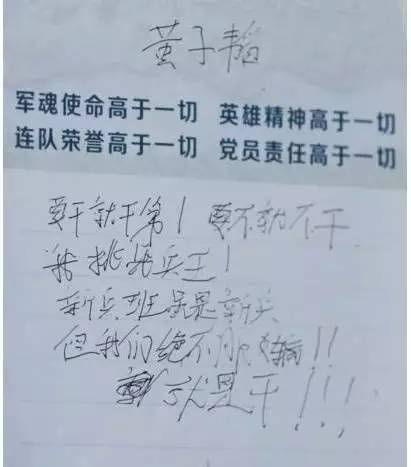 黄子韬
军魂使命高于一切 英雄精神高于一切
连队荣誉高于一切 党员责任高于一切
要干就干第1 要不就不干
我挑战兵王!
新兵班虽是新兵
但我们绝不
就是干!!!